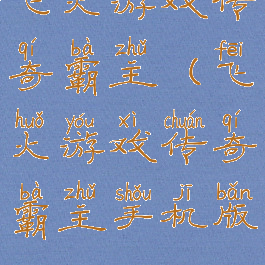 飞火游戏传
qí bà zhǔ fēi
奇霸主(飞
huǒ yóu xì chuán qí
火游戏传奇
bà zhǔ shǒu jī bǎn
霸主手机版